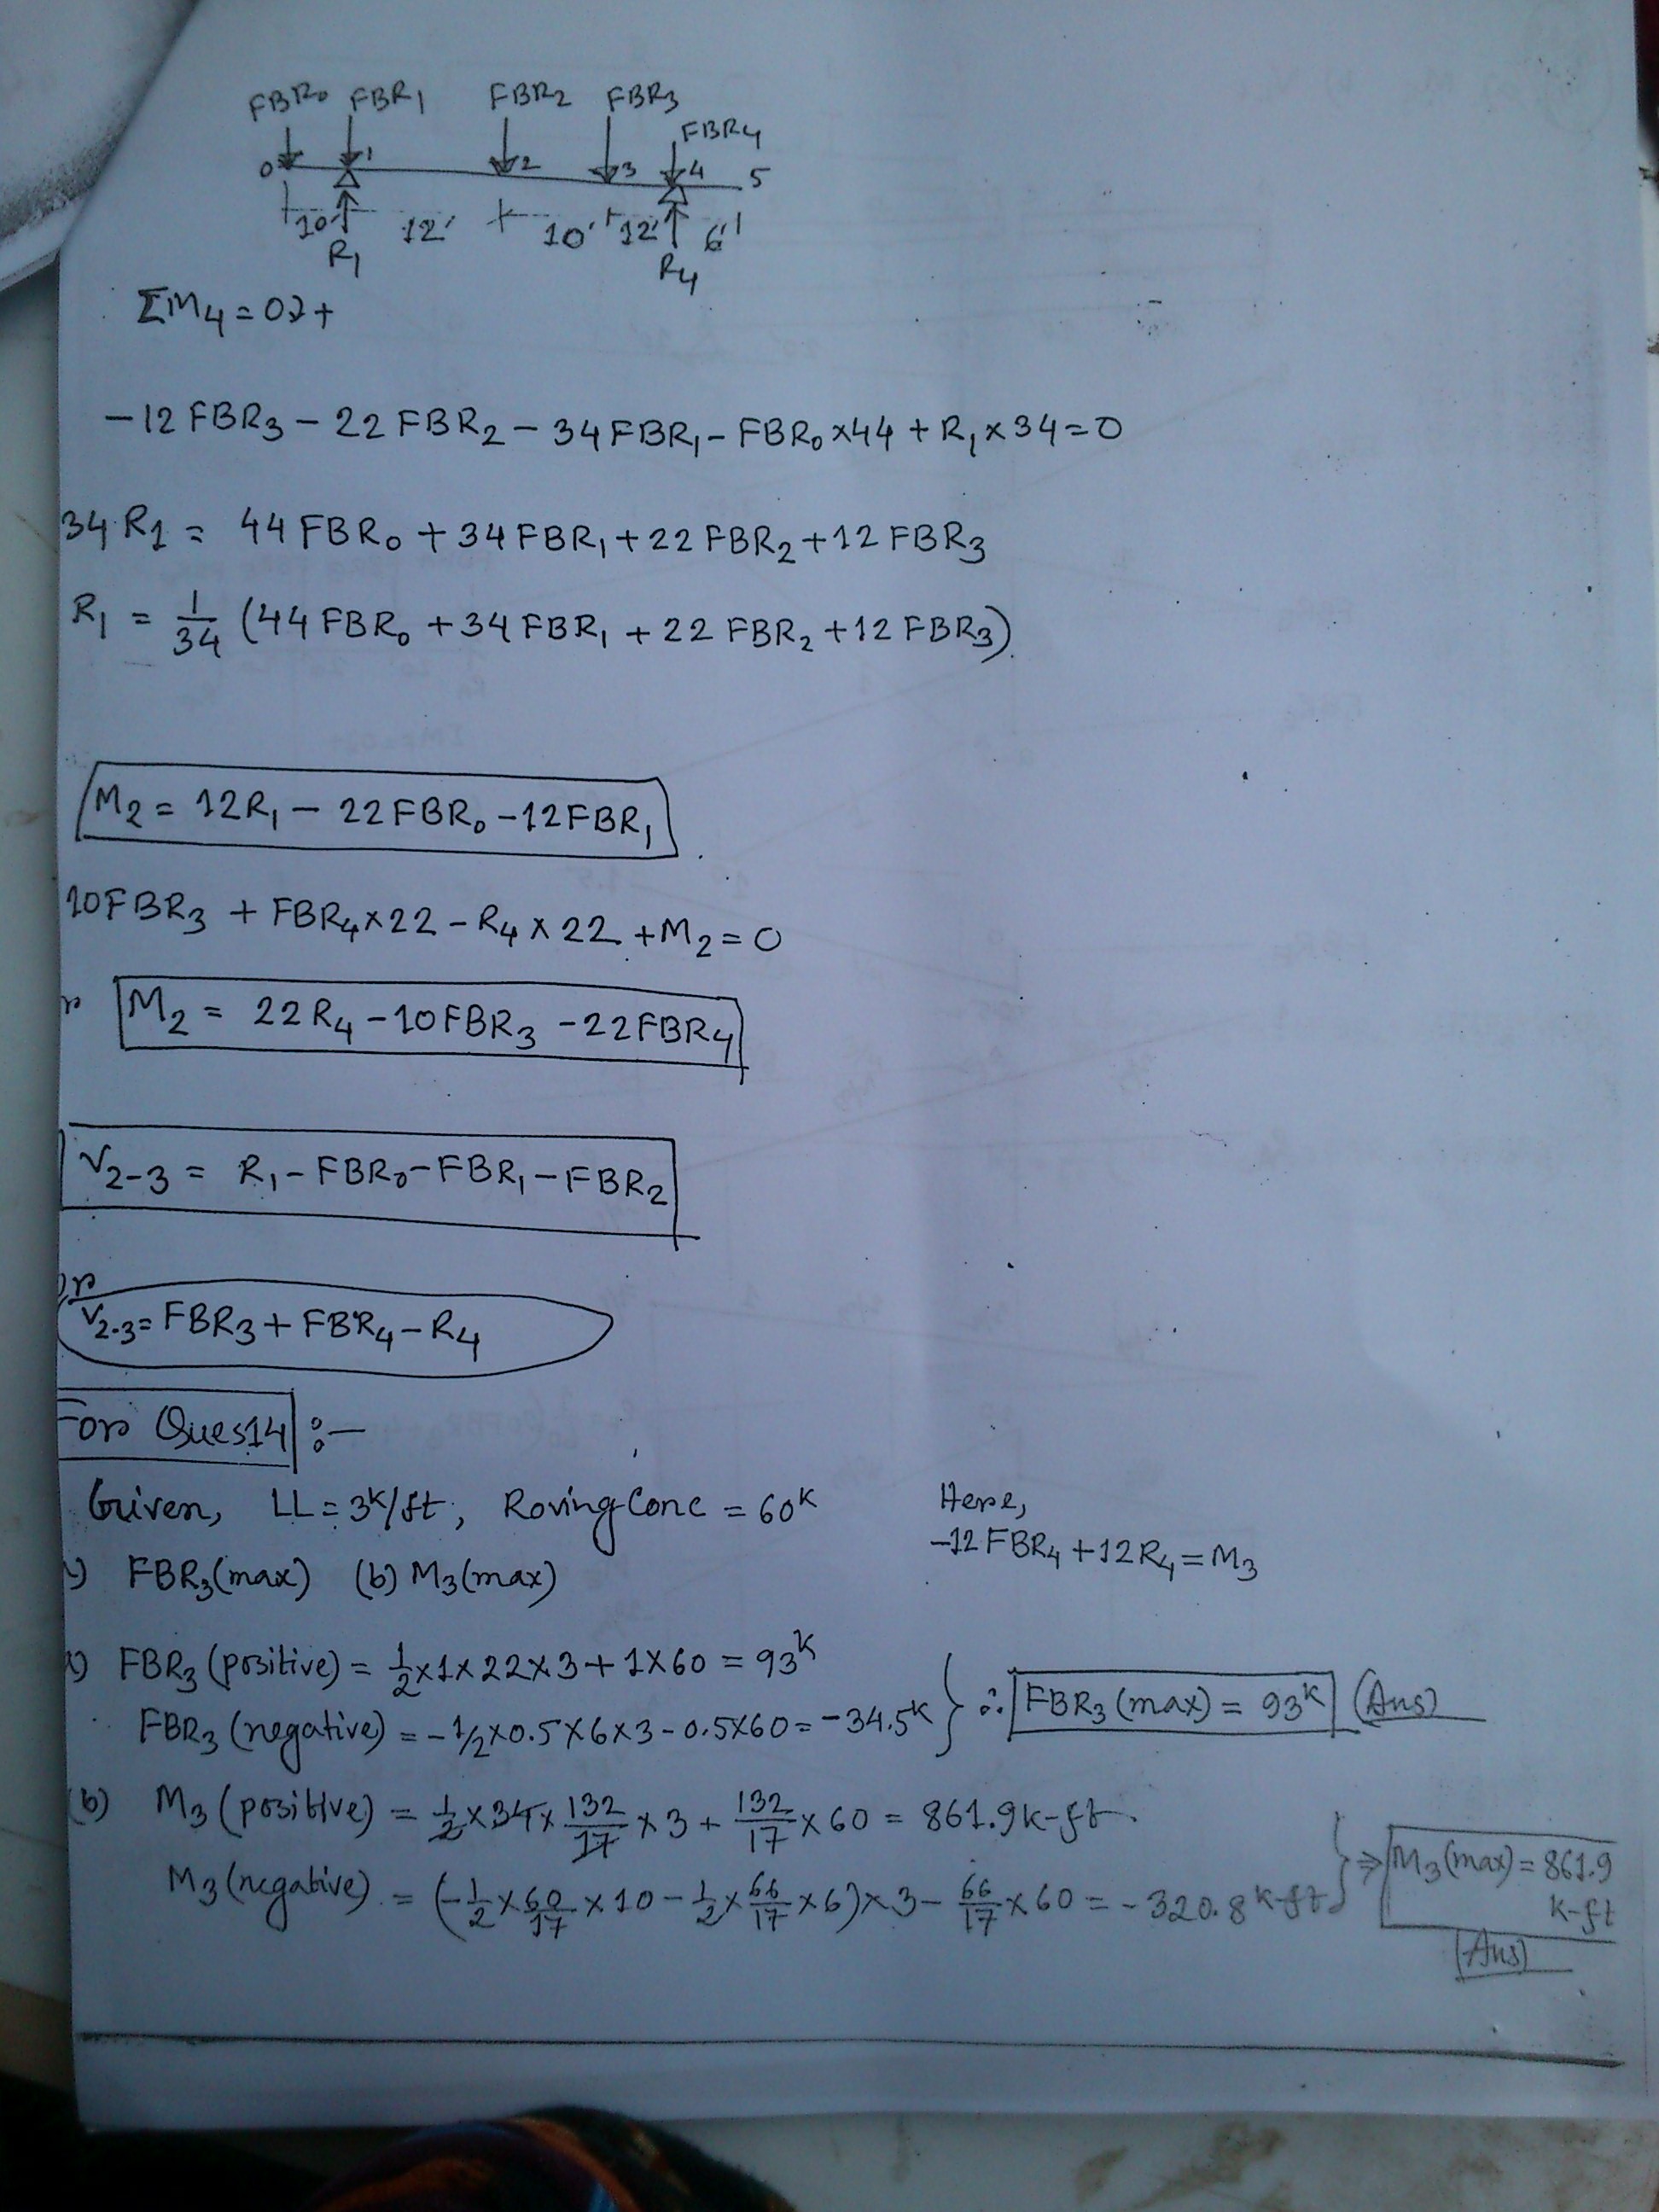 FBR₀ FBR₁ FBR₂ FBR₃
FBR₄
0 1 2 3 4 5
10' 12' 10' 12' 6'
R₁ R₄
ΣM₄ = 0 ↻+
-12FBR₃ - 22FBR₂ - 34FBR₁ - FBR₀×44 + R₁×34 = 0
34R₁ = 44FBR₀ + 34FBR₁ + 22FBR₂ + 12FBR₃
R₁ = 1/34 (44FBR₀ + 34FBR₁ + 22FBR₂ + 12FBR₃)
M₂ = 12R₁ - 22FBR₀ - 12FBR₁
10FBR₃ + FBR₄×22 - R₄×22 + M₂ = 0
M₂ = 22R₄ - 10FBR₃ - 22FBR₄
V₂₋₃ = R₁ - FBR₀ - FBR₁ - FBR₂
or
V₂₋₃ = FBR₃ + FBR₄ - R₄
For Ques14 :-
Given, LL = 3k/ft, Roving Conc = 60k
Here,
-12FBR₄ + 12R₄ = M₃
FBR₃(max) (b) M₃(max)
FBR₃ (positive) = 1/2×1×22×3 + 1×60 = 93k
FBR₃ (negative) = -1/2×0.5×6×3 - 0.5×60 = -34.5k } ∴ FBR₃ (max) = 93k (Ans)
(b) M₃ (positive) = 1/2×34×132/17×3 + 132/17×60 = 861.9k-ft
M₃ (negative) = (-1/2×60/17×10 - 1/2×66/17×6)×3 - 66/17×60 = -320.8k-ft } ⇒ M₃ (max) = 861.9
k-ft
(Ans)